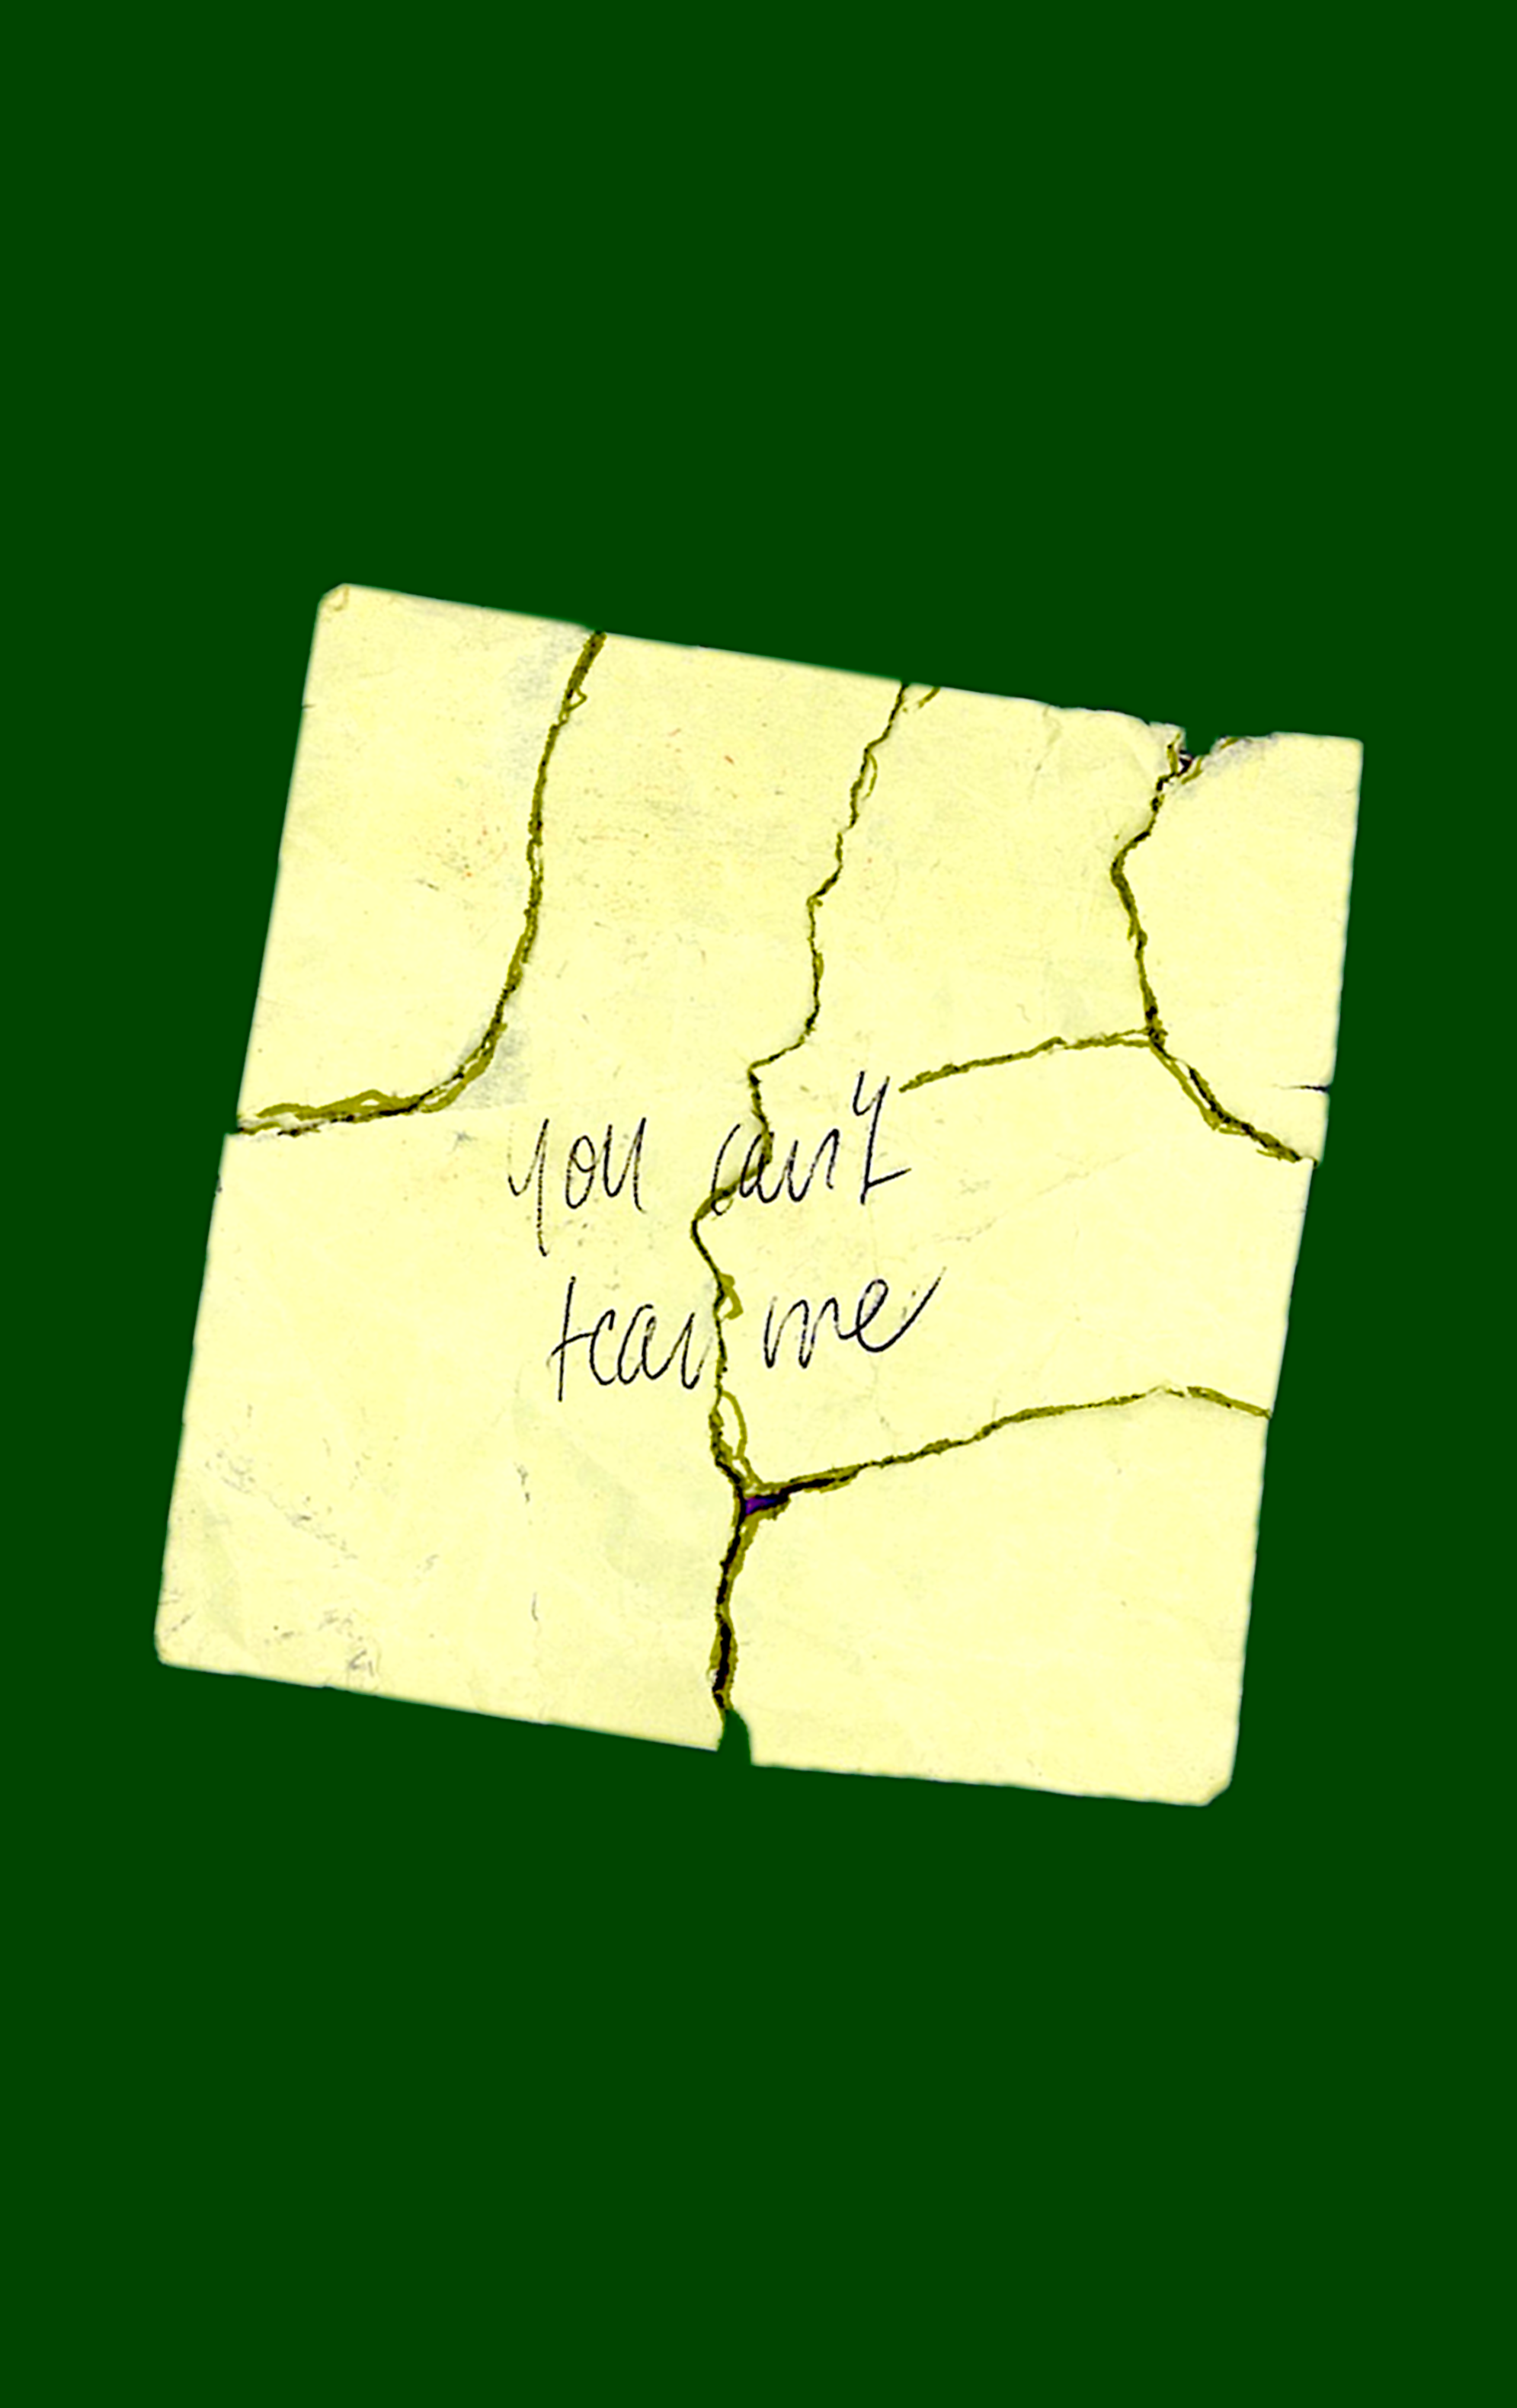 you can't
tear me